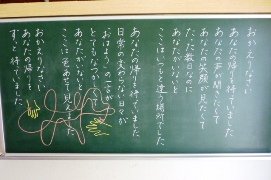 おかえりなさい
あなたの帰りを待っていました
あなたの声が聞きたくて
あなたの笑顔が見たくて
たった数日なのに
あなたがいないと
ここはいつもと違う場所でした
あなたの帰りを待っていました
日常の変わらない日々が
おはようの一言が
とてもなつかしくて
あなたがいないと
ここは色あせて見えました
おかえりなさい
あなたの帰りを
ずっと待っていました